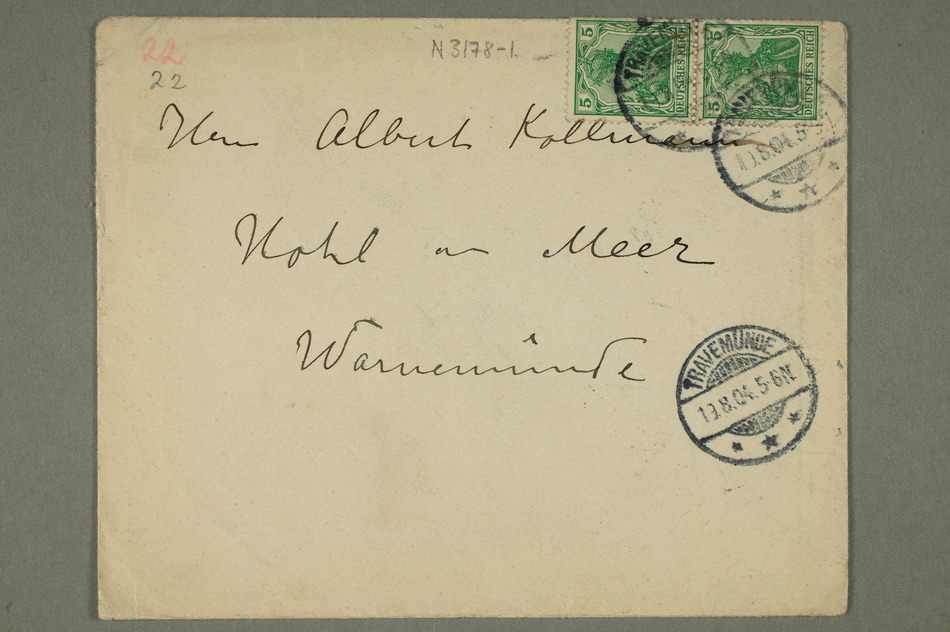 22
22
N 3178-1
5 5 DEUTSCHES REICH
5 5 DEUTSCHES REICH
Herrn Albert Kollmann
Hotel am Meer
Warnemünde
TRAVEM
10.8.04.5-
TRAVEMÜNDE
10.8.04.5-6N.